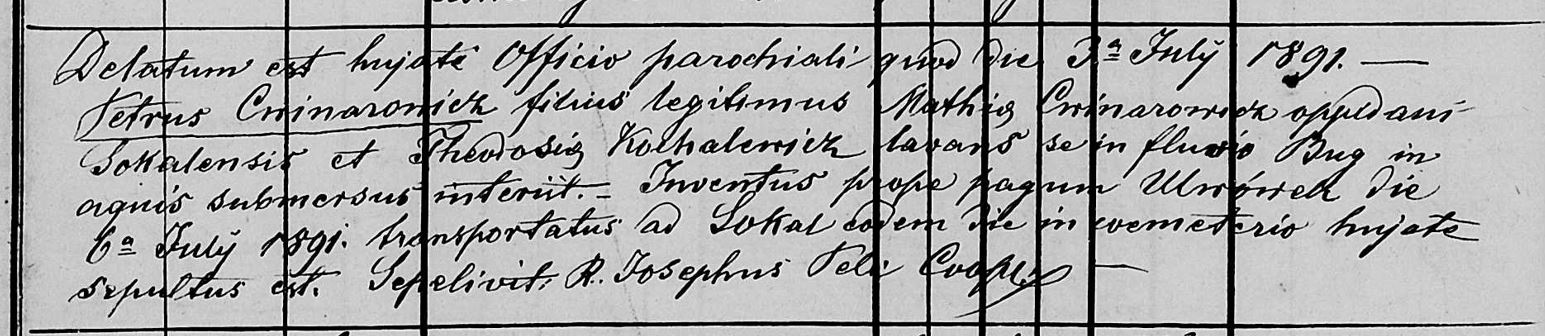 Delatum est hujati Officio parochiali quod die 3ª Julÿ 1891. —
Petrus Cwinarowicz filius legitimus Mathiæ Cwinarowicz oppidani
Sokalensis et Theodosiæ Kochalewicz lavans se in fluvio Bug in
aquis submersus interiit. – Inventus prope pagum Ulwówek die
6ª Julÿ 1891. transportatus ad Sokal eodem die in coemeterio hujate
sepultus est. Sepelivit: R. Josephus Pelc Coop. —